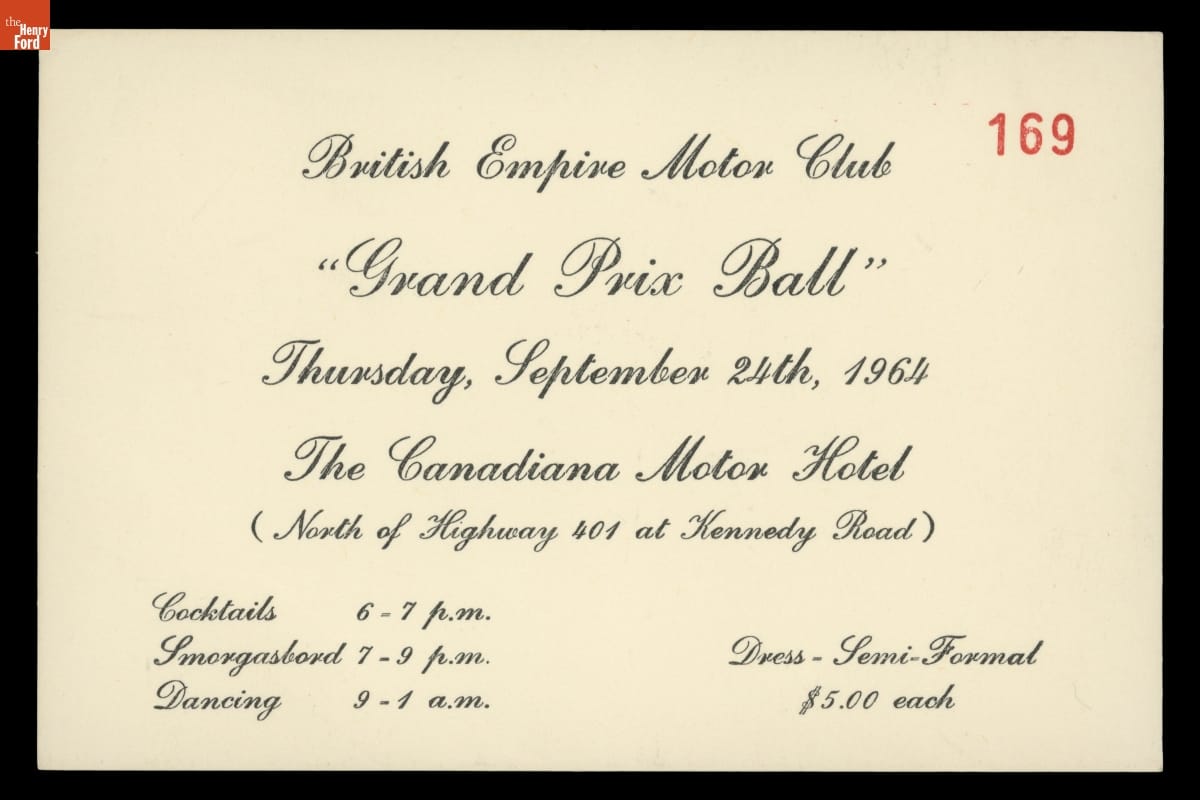 the
Henry
Ford
169
British Empire Motor Club
“Grand Prix Ball”
Thursday, September 24th, 1964
The Canadiana Motor Hotel
(North of Highway 401 at Kennedy Road)
Cocktails 6 - 7 p.m.
Smorgasbord 7 - 9 p.m.
Dancing 9 - 1 a.m.
Dress - Semi-Formal
$5.00 each